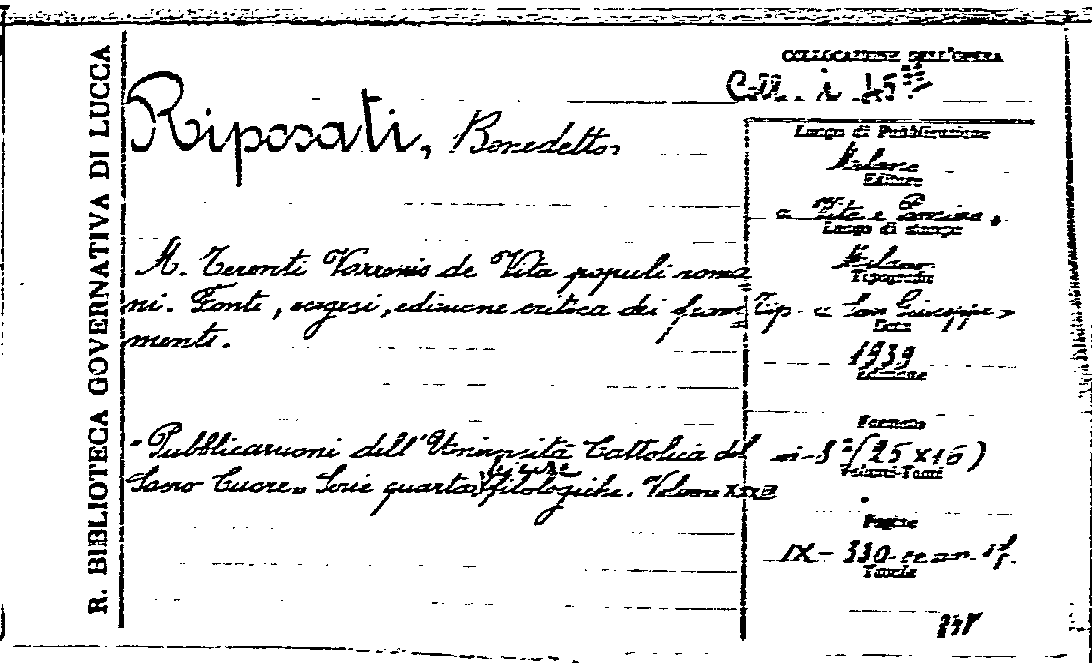 R. BIBLIOTECA GOVERNATIVA DI LUCCA
COLLOCAZIONE DELL'OPERA
Coll. i 45
Riposati, Benedetto,
M. Terenti Varronis de Vita populi roma
ni. Fonti, esegesi, edizione critica dei fram
menti.
"Pubblicazioni dell'Università Cattolica del
Sacro Cuore" Serie quarta: scienze
filologiche. Volume
Luogo di Pubblicazione
Milano
Editore
« Vita e Pensiero »
Luogo di stampa
Milano
Tipografia
Tip. « San Giuseppe »
Data
1939
Edizione
Formato
in-8° (25 x 16)
Volumi-Tomi
Pagine
IX - 330
Tavole